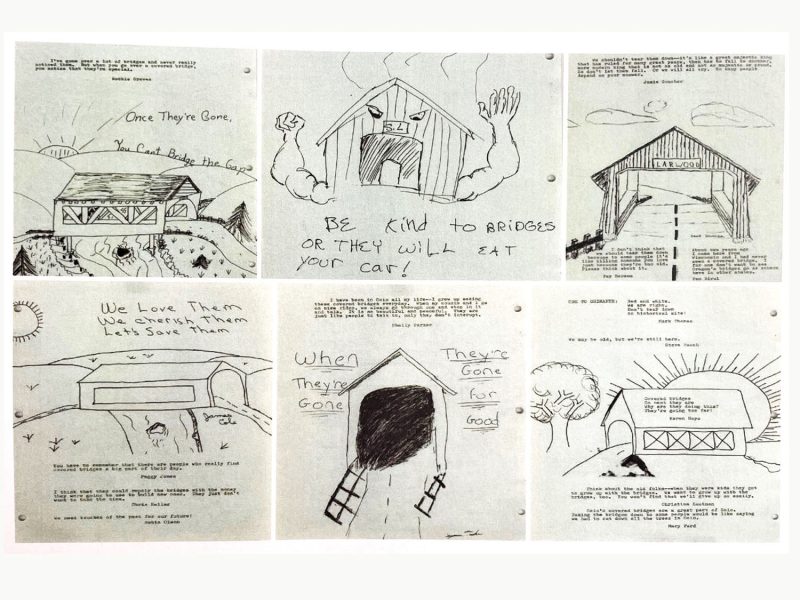 I've gone over a lot of bridges and never really
noticed them. But when you go over a covered bridge,
you notice that they're special.
Once They're Gone,
You Can't Bridge the Gap
S.L.
BE Kind to BRIDGES
OR THEY WILL EAT
your car!
We shouldn't tear them down--it's like a great majestic king
that has ruled for many great years, then has to fall to another,
more modern king that is not as old and not as majestic or proud.
So don't let them fall. Or we will all cry. So many people
depend on your answer.
Jamie Goucher
LARWOOD
I don't think that
you should tear them down
because to some people it's
like killing someone you love
just because they're too old.
Please think about it.
About two years ago
I came here from
Wisconsin and I had never
seen a covered bridge. I
for one don't want to see
Oregon's bridges go as
in other states.
We Love Them
We cherish Them
Let's Save Them
James
Cole
You have to remember that there are people who really find
covered bridges a big part of their day.
Peggy Jones
I think that they could repair the bridges with the money
they were going to use to build new ones. They just don't
want to take the time.
Chris Keller
We need touches of the past for our future!
Olson
I have been in Scio all my life--I grew up seeing
these covered bridges everyday. When my cousin and I go
on bike rides, we always go through one and stop in it
and talk. It is so beautiful and peaceful. They are
just like people to talk to, only they don't interrupt.
Shelly Parker
When
They're
Gone
They're
Gone
for
Good
ODE TO GILKEY:
Red and white,
we are right,
Don't tear down
an historical site!
Mark Thomas
We may be old, but we're still here.
Steve
Covered bridges
So neat they are
Why are they doing this?
They're going too far!
Karen Hays
Think about the old folks--when they were kids they got
to grow up with the bridges. We want to grow up with the
bridges, too. You won't find that we'll give up so easily.
Christine
Scio's covered bridges are a great part of Scio.
Taking the bridges down to some people would be like saying
we had to cut down all the trees in Scio.
Mary Ford